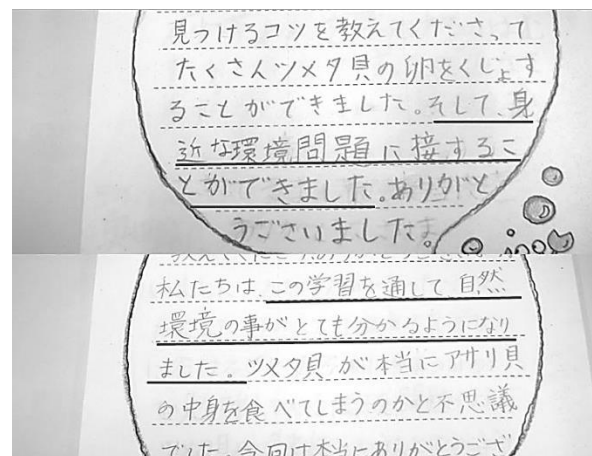 見つけるコツを教えてくださって
たくさんツメタ貝の卵をくじょす
ることができました。そして、身
近な環境問題に接するこ
とができました。ありがと
うございました。
私たちは、この学習を通して、自然
環境の事がとても分かるようになり
ました。ツメタ貝が本当にアサリ貝
の中身を食べてしまうのかと不思議
でした。今回は本当にありがとうござ